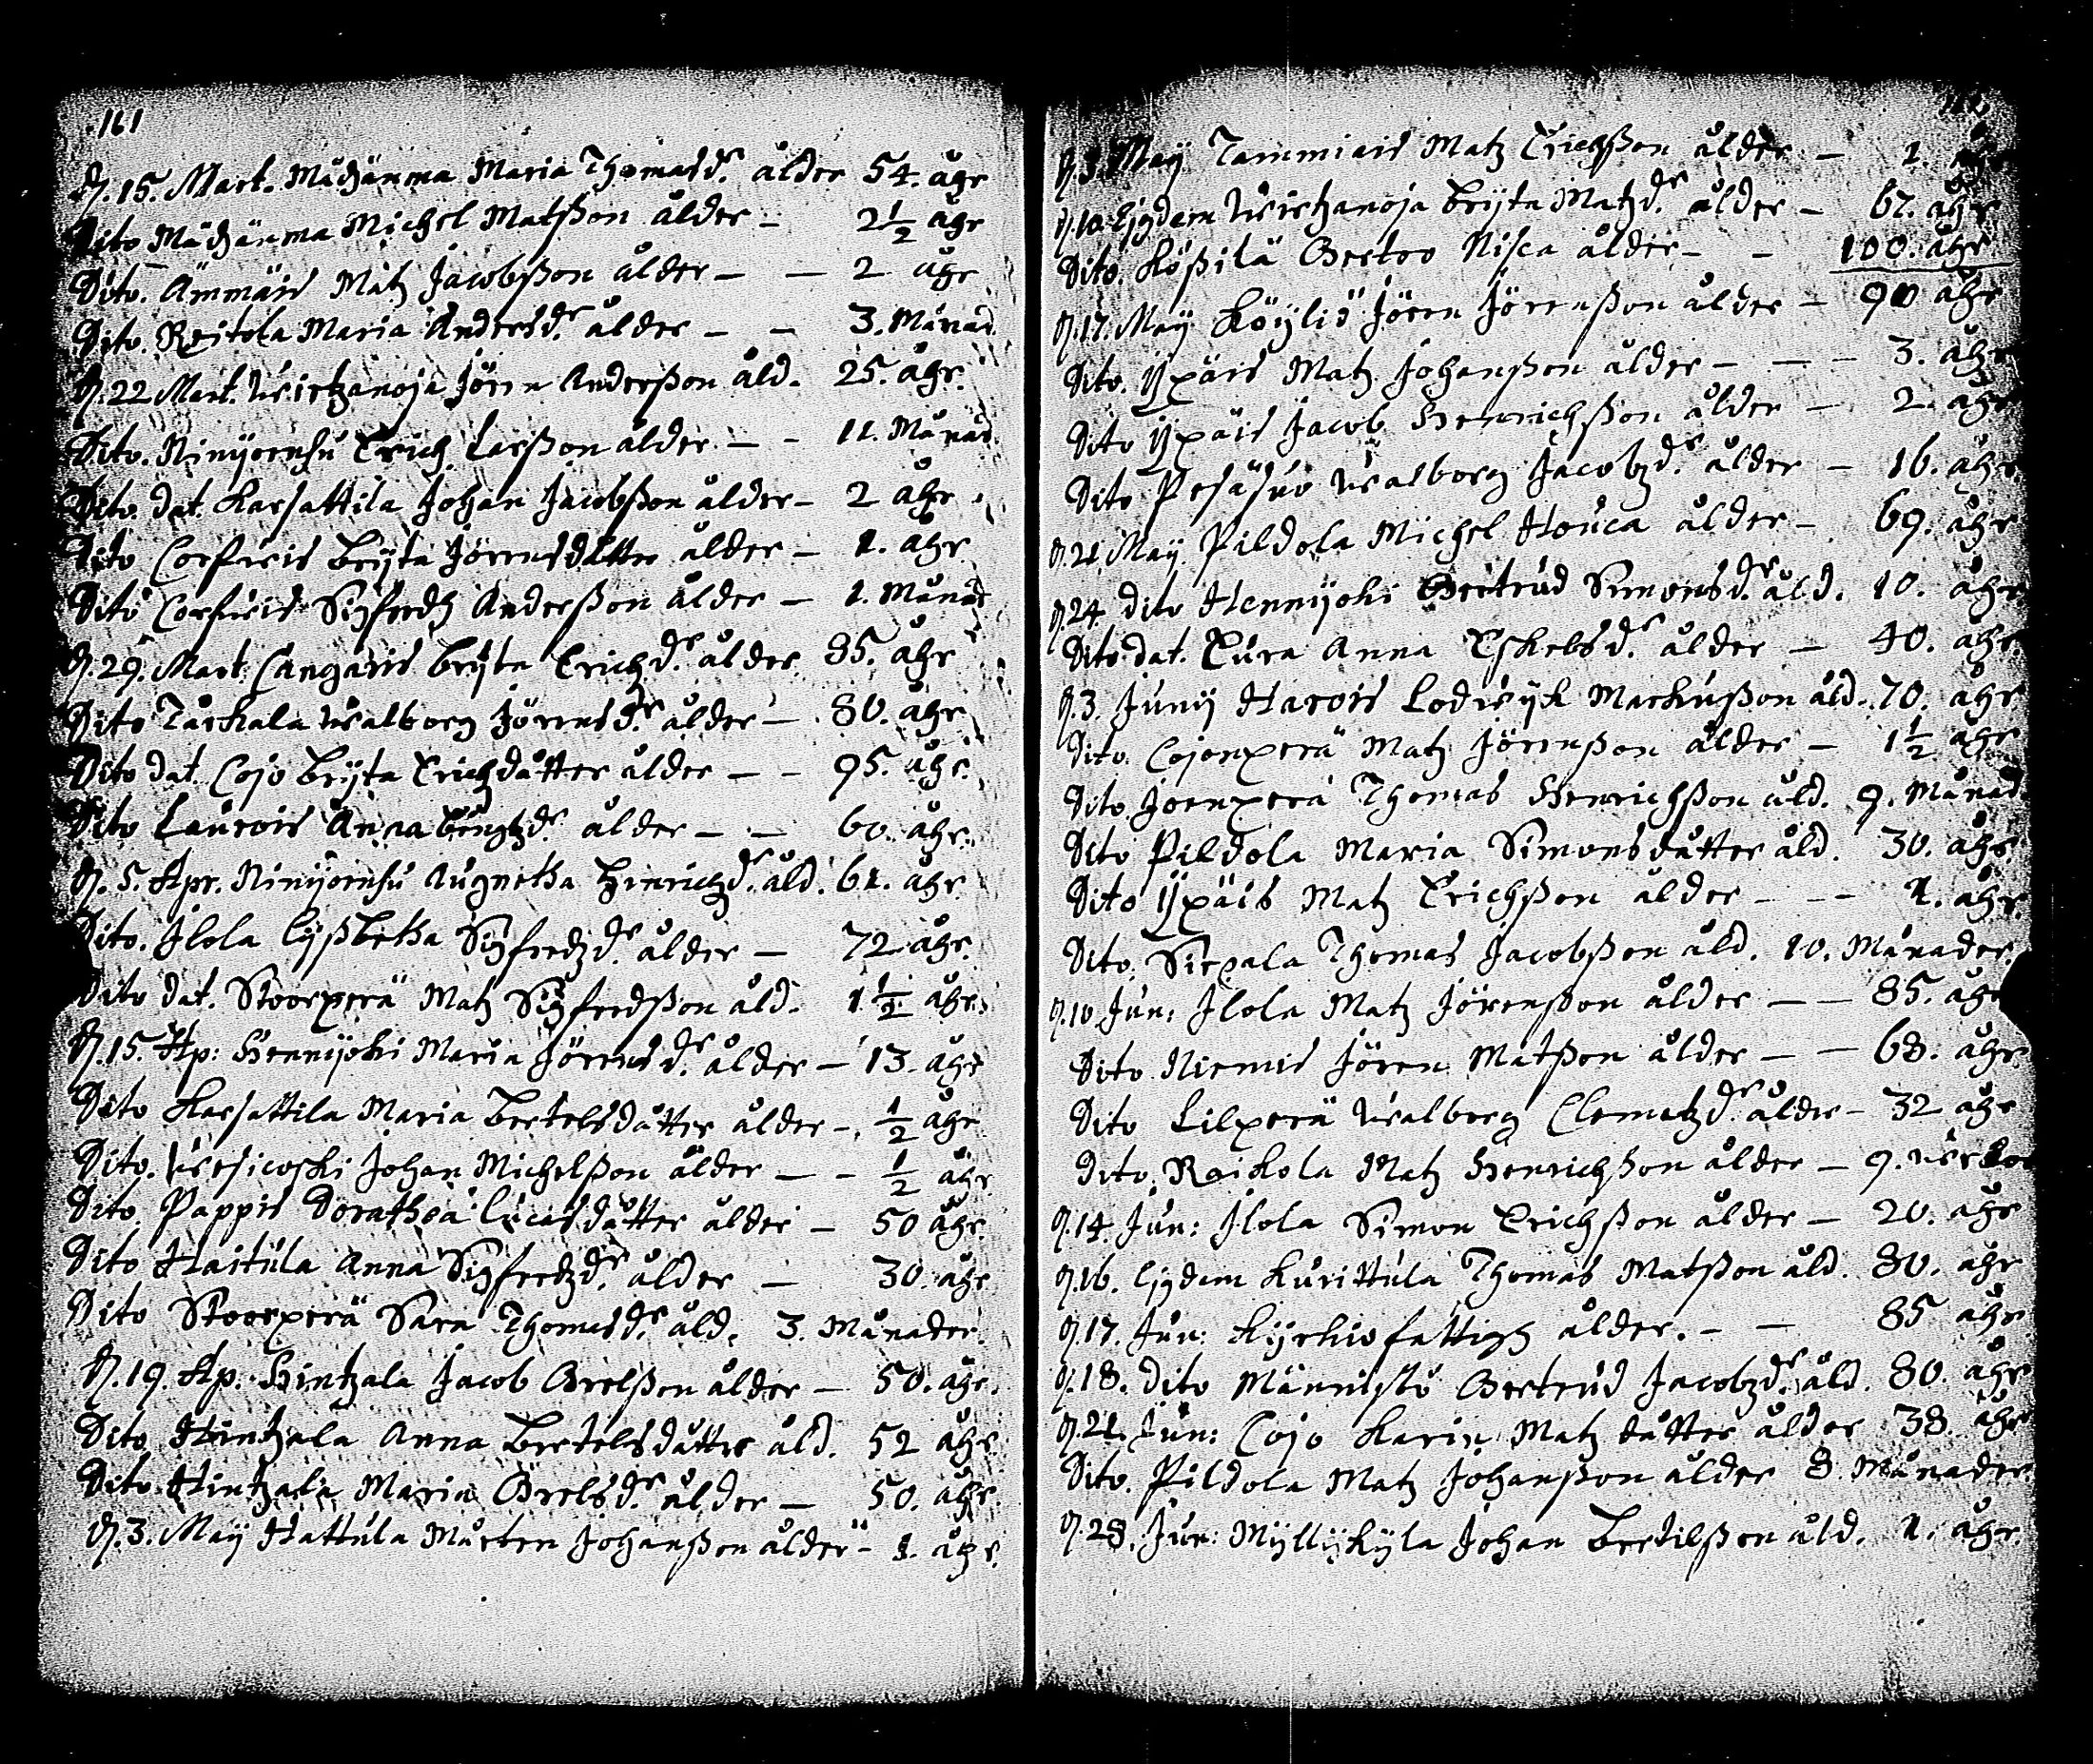 161
D. 15. Mart. Mädzänma Maria Thomasdr. ålder 54. åhr
Dito Mädzänma Michel Matßon ålder – 2 1/2 åhr
Dito. Ämmäis Matz Jacobßon ålder – – 2 åhr
Dito. Reitola Maria Andersdr. ålder – – 3. Månad
D. 22 Mart. Wirtzanoja Jören Anderßon åld. 25. åhr.
Dito. Ninijoensu Erich Larßon ålder – – 11. Månad
Dito. dat. Karsattila Johan Jacobßon ålder – 2 åhr
Dito Corfwis Brijta Jörensdotter ålder – 1. åhr
Dito Corfwis Sigfredh Anderßon ålder – 1. Månad
D. 29. Mart. Cangaris Brijta Erichzdr. ålder 85. åhr
Dito Tackala Walborg Jörensdr. ålder – 80. åhr
Dito dat. Cojo Brijta Erichdåtter ålder – – 95. åhr.
Dito Laurois Anna Bengtzdr. ålder – – 60. åhr.
D. 5. Apr. Ninijoensu Augnetha Hinrichzdr. åld. 61. åhr
Dito. Jlola Lijßbetha Sigfredzdr. ålder – 72 åhr.
Dito dat. Stoorperä Matz Sigfredßon åld. 1 1/2 åhr.
D. 15. Ap: Hennijoki Maria Jörensdr. ålder – 13. åhr
Dito Karsattila Maria Bertelsdåtter ålder – 1/2 åhr
Dito. Wesicoski Johan Michelßon ålder – – 1/2 åhr
Dito Pappis Dorathea Lucasdåtter ålder – 50 åhr.
Dito Haitula Anna Sigfredzdr. ålder – 30. åhr
Dito Stoorperä Sara Thomasdr. åld. 3. Månader.
D. 19. Ap. Hintzala Jacob Grelßon ålder – 50. åhr.
Dito Hintzala Anna Bertelsdåtter åld. 52 åhr.
Dito Hintzala Maria Grelsdr. ålder – 50. åhr.
D. 3. Maij Hattula Mårten Johanßon ålder – 1. åhr.
D. 3. Maij Tammiais Matz Erichßon ålder – 1. åhr
D. 10. Ejgdem Wirtzanoja Brijta Matzdr. ålder – 67. åhr
Dito. Kößilä Gertoo Nisca ålder – – 100. åhr
D. 17. Maij Köyliö Jören Jörenßon ålder – 90 åhr
Dito. Ypäis Matz Johanßon ålder – – – 3. åhr
Dito Ypäis Jacob Henrichßon ålder – 2. åhr
Dito Pesäsuo Walborg Jacobzdr. ålder – 16. åhr.
D. 21. Maij Pildola Michel Houca ålder – 69. åhr
D. 24. Dito Hennijoki Gertrud Simonsdr. åld. 10. åhr
Dito dat. Eura Anna Eskelsdr. ålder – 40. åhr.
D. 3. Junij Harois Lodwijk Markußon åld. 70. åhr
Dito. Cojonperä Matz Jörenßon ålder – 1 1/2 åhr
Dito. Joenperä Thomas Henrichßon åld. 9. Månad.
Dito Pildola Maria Simonsdåtter åld. 30. åhr
Dito Ypäis Matz Erichßon ålder – – – 1. åhr.
Dito. Sirpala Thomas Jacobßon åld. 10. Månader.
D. 10. Jun: Jlola Matz Jörenßon ålder – – 85. åhr
Dito Niemis Jören Matßon ålder – – 68. åhr
Dito Lilperä Walborg Clemetzdr. ålder – 32 åhr
Dito. Raikola Matz Henrichßon ålder – 9. wekor
D. 14. Jun: Jlola Simon Erichßon ålder – 20. åhr
D. 16. Ejgdem Kurittula Thomas Matßon åld. 80. åhr
D. 17. Jun: Kyrkiofattigh ålder. – – 85 åhr
D. 18. Dito Männistö Gertrud Jacobzdr. åld. 80. åhr
D. 21. Jun: Cojo Karin Matz dåtter ålder 38. åhr
Dito. Pildola Matz Johanßon ålder 8. Månader.
D. 28. Jun: Myllykyla Johan Bertilßon åld. 1. åhr.